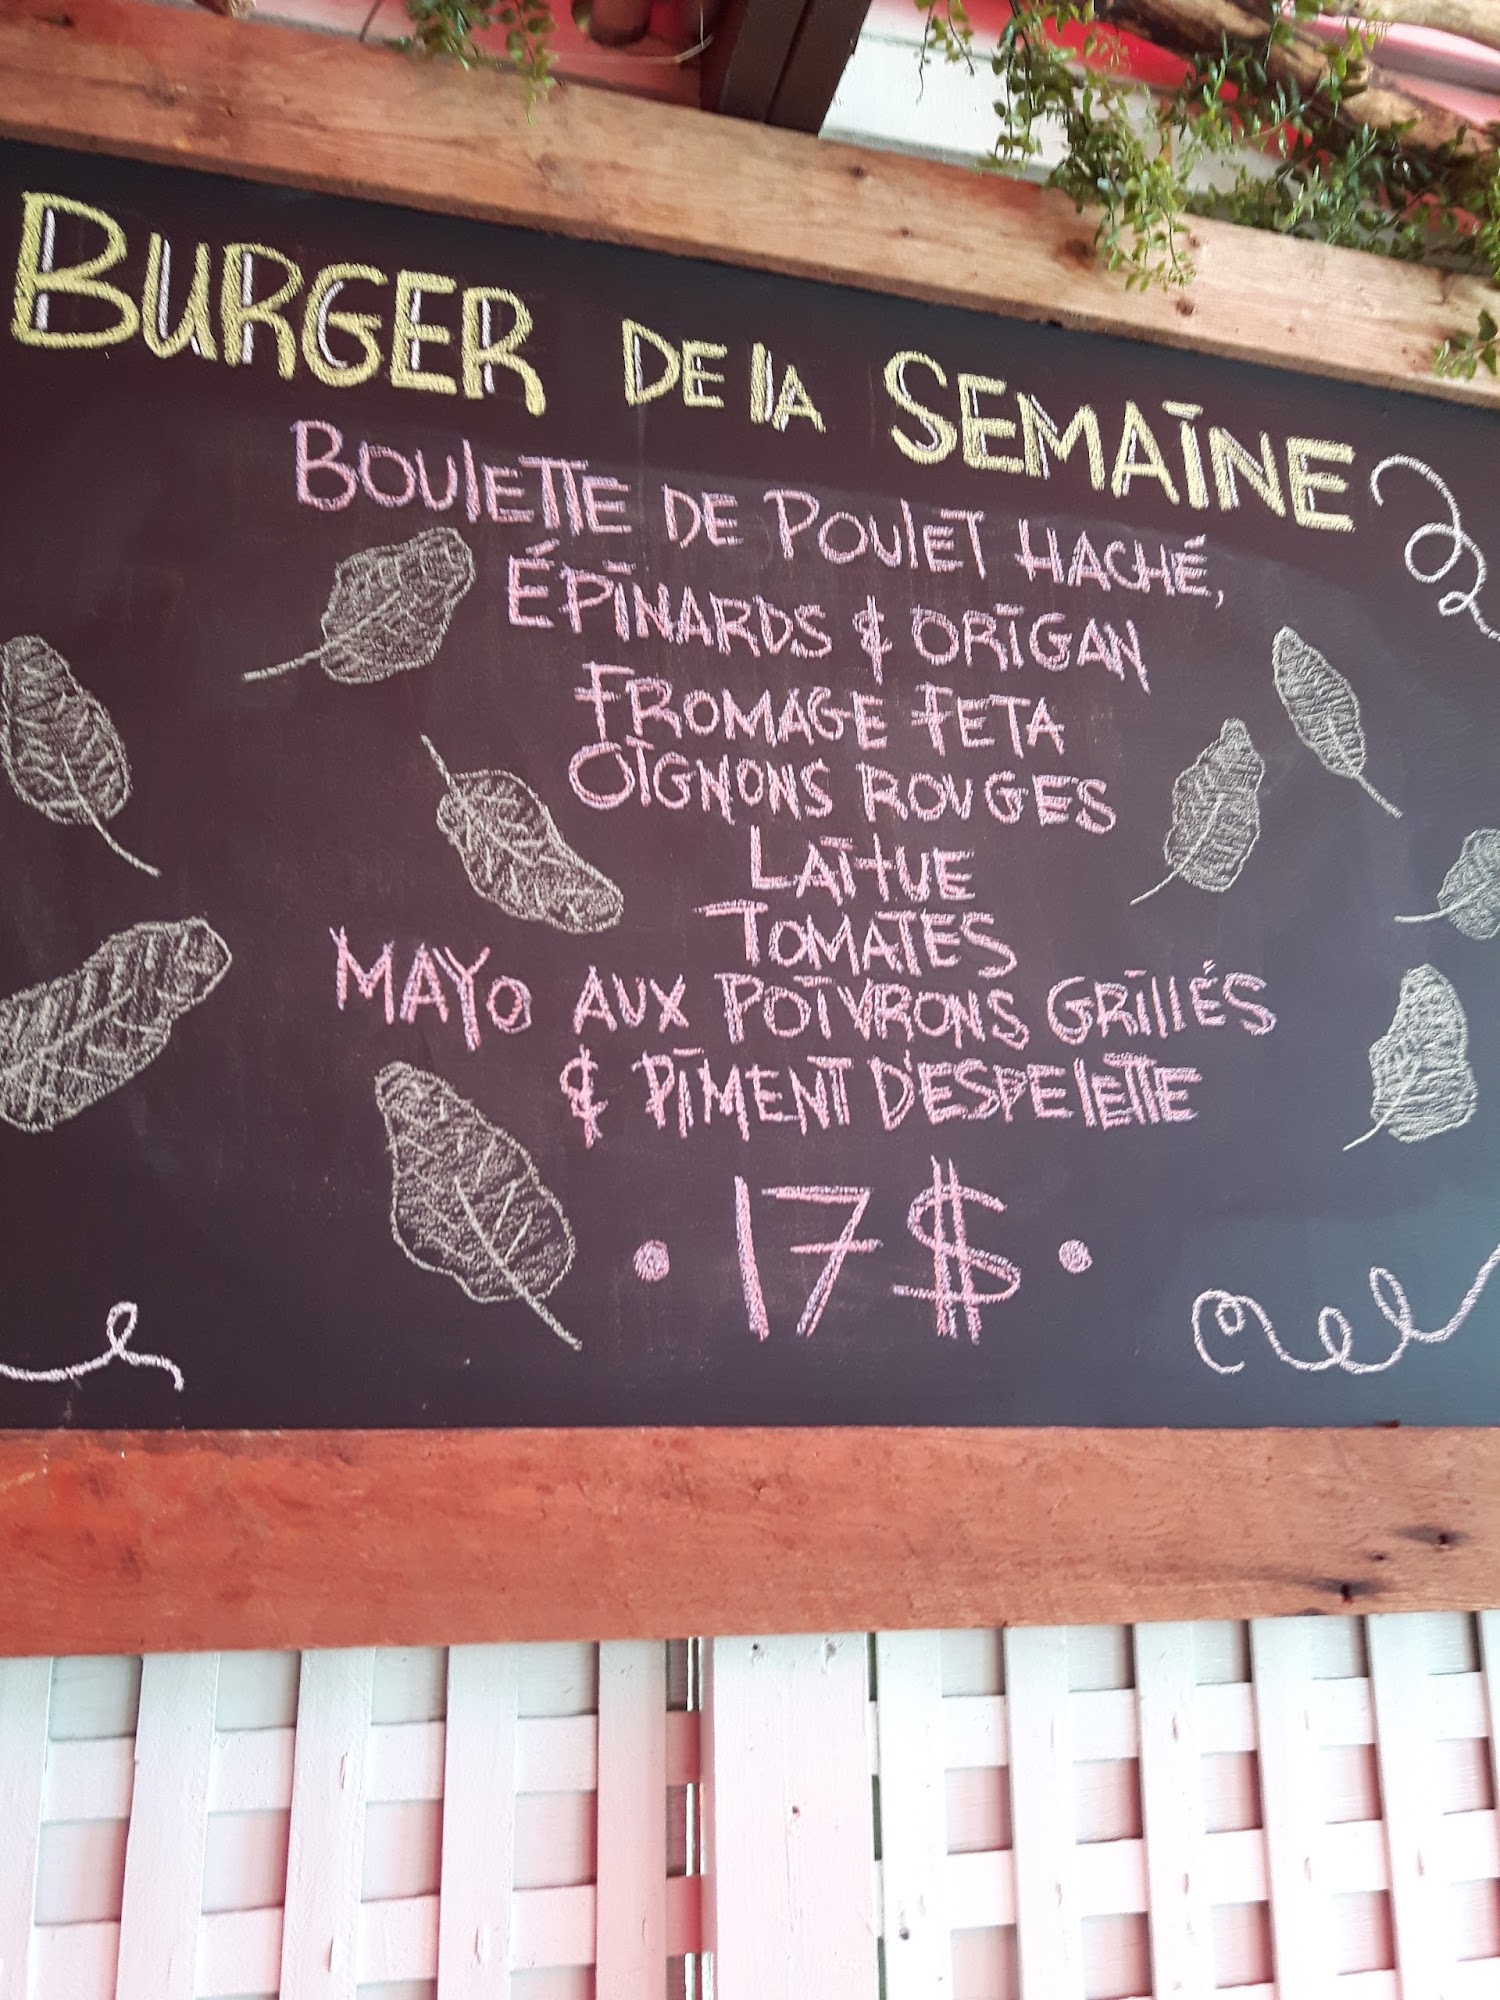 BURGER DE LA SEMAINE
BOULETTE DE POULET HACHÉ,
ÉPINARDS & ORIGAN
FROMAGE FETA
OIGNONS ROUGES
LAITUE
TOMATES
MAYO AUX POIVRONS GRILLÉS
& PIMENT D'ESPELETTE
• 17$ •